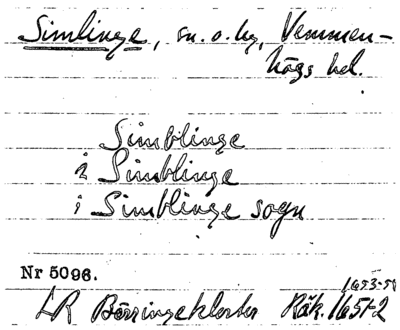 Simlinge, sn. o. by, Vemmen-
högs hd.
Simblinge
i Simblinge
i Simblinge sogn
Nr 5096.
1653-54
LR Börringekloster Räk. 1651-2